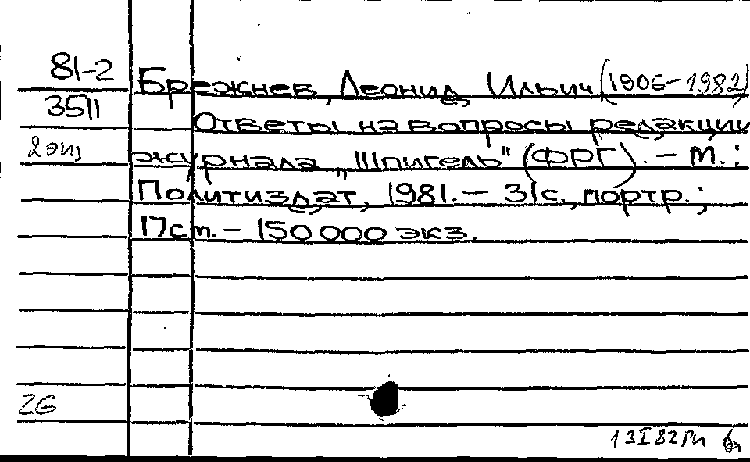 81-2
3511
2 экз
Брежнев, Леонид Ильич (1906-1982)
Ответы на вопросы редакции
журнала „Шпигель" (ФРГ). - М.:
Политиздат, 1981. - 31с., портр.;
17см. - 150000 экз.
26
13I82